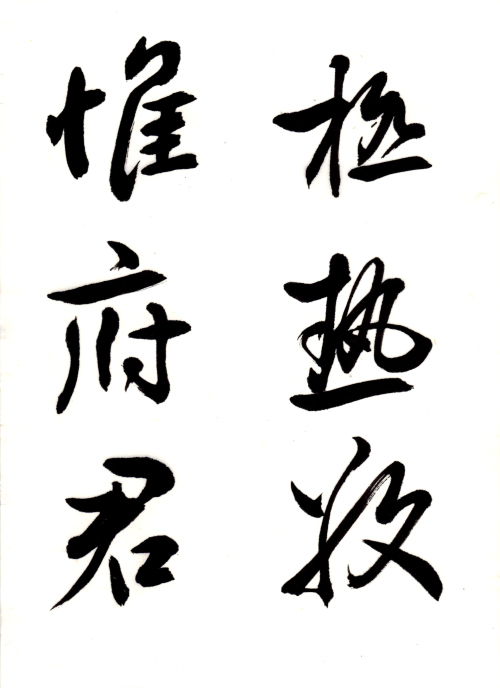 極熱敬
惟府君